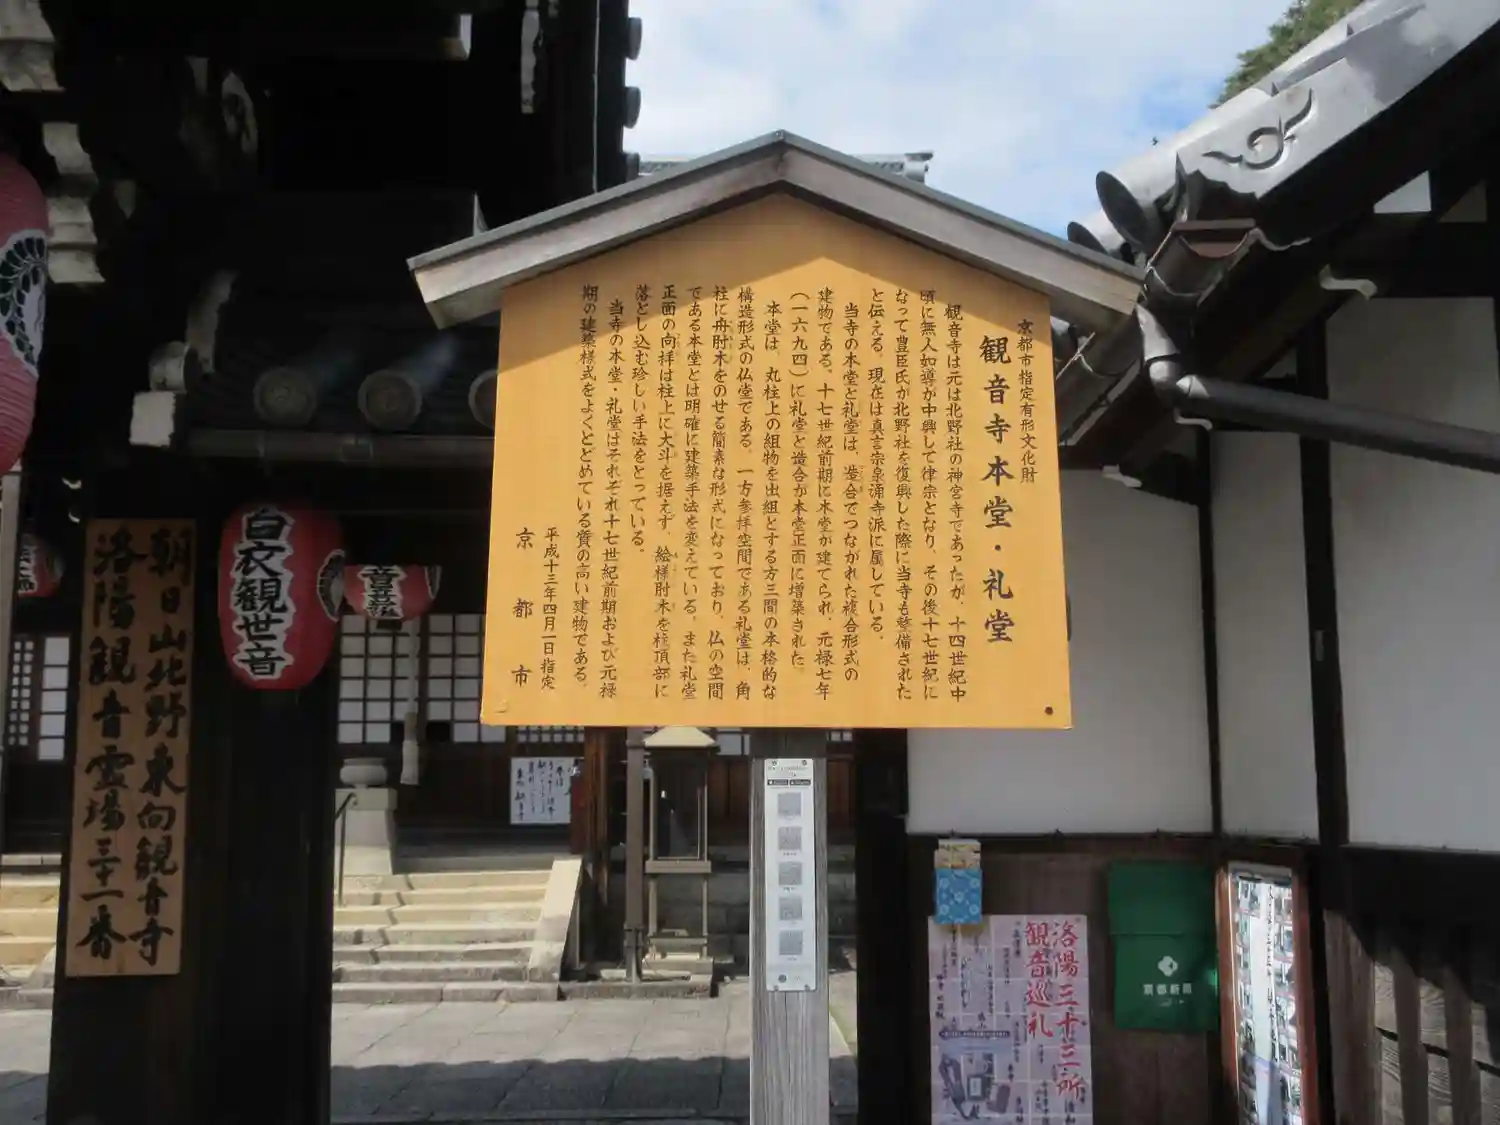 京都市指定有形文化財
観音寺本堂・礼堂
観音寺は元は北野社の神宮寺であったが、十四世紀中
頃に無人如導が中興して律宗となり、その後十七世紀に
なって豊臣氏が北野社を復興した際に当寺も整備された
と伝える。現在は真言宗泉涌寺派に属している。
当寺の本堂と礼堂は、造合でつながれた複合形式の
建物である。十七世紀前期に本堂が建てられ、元禄七年
（一六九四）に礼堂と造合が本堂正面に増築された。
本堂は、丸柱上の組物を出組とする方三間の本格的な
構造形式の仏堂である。一方参拝空間である礼堂は、角
柱に舟肘木をのせる簡素な形式になっており、仏の空間
である本堂とは明確に建築手法を変えている。また礼堂
正面の向拝は柱上に大斗を据えず、絵様肘木を柱頂部に
落とし込む珍しい手法をとっている。
当寺の本堂・礼堂はそれぞれ十七世紀前期および元禄
期の建築様式をよくとどめている質の高い建物である。
平成十三年四月一日指定
京都市
白衣観世音
朝日山北野東向観音寺
洛陽観音霊場三十一番
洛陽三十三所
観音巡礼
京都新聞